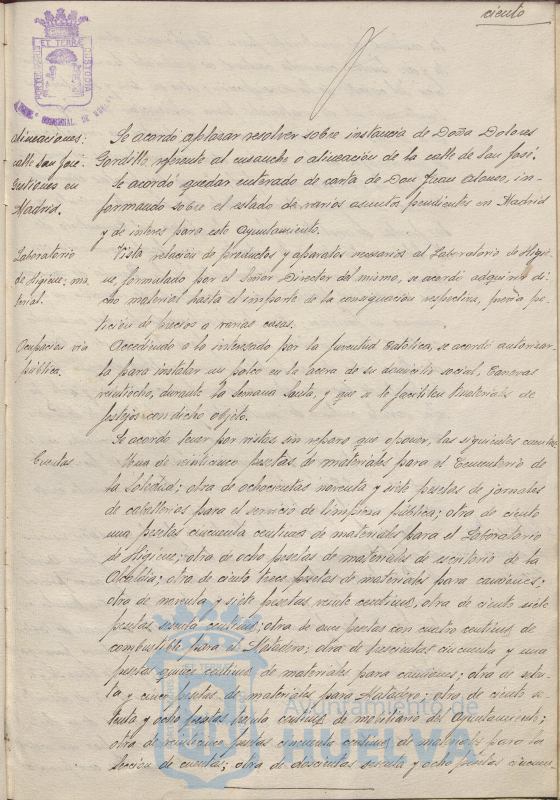 ciento
PORTUS MARIS ET TERRÆ CUSTODIA
alineaciones:
calle San José.
Gestiones en
Madrid.
Se acordó aplazar resolver sobre instancia de Doña Dolores
Gordillo, referente al ensanche o alineación de la calle de San José.
Se acordó quedar enterado de carta de Don Juan Alonso, in-
formando sobre el estado de varios asuntos pendientes en Madrid
y de interés para este Ayuntamiento.
Laboratorio
de Higiene; ma-
terial.
Vista relación de productos y aparatos necesarios al Laboratorio de Higie-
ne, formulado por el Señor Director del mismo, se acordó adquirir di-
cho material hasta el importe de la consignación respectiva, previa pe-
tición de precios a varias casas.
Ocupación vía
pública.
Accediendo a lo interesado por la Juventud Católica, se acordó autorizar-
la para instalar un palco en la acera de su domicilio social, Cánovas
veintiocho, durante la Semana Santa, y que se le faciliten materiales de
festejos con dicho objeto.
Se acordó tener por vistas sin reparo que oponer, las siguientes cuentas
Cuentas
Una de veinticinco pesetas de materiales para el Cementerio de
la Soledad; otra de ochocientas noventa y siete pesetas de jornales
de caballerías para el servicio de limpieza pública; otra de ciento
una pesetas cincuenta centimos de materiales para el Laboratorio
de Higiene; otra de ocho pesetas de materiales de escritorio de la
Alcaldía; otra de ciento trece pesetas de materiales para camiones;
otra de noventa y siete pesetas veinte centimos, otra de ciento siete
pesetas centimos; otra de once pesetas con cuatro centimos de
combustible para el Matadero; otra de doscientas cincuenta y una
pesetas quince centimos de materiales para camiones; otra de seten-
ta y cinco pesetas de materiales para Matadero; otra de ciento se-
tenta y ocho pesetas centimos de mobiliario del Ayuntamiento;
otra de veinticinco pesetas cincuenta centimos de materiales para la
Sección de cuentas; otra de doscientas sesenta y ocho pesetas cincuen-
Ayuntamiento de
HUELVA